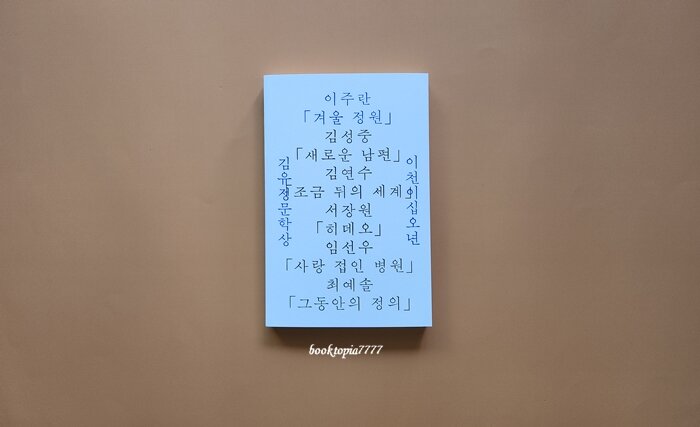 이주란
「겨울 정원」
김성중
「새로운 남편」
김연수
「조금 뒤의 세계」
서장원
「히데오」
임선우
「사랑 접인 병원」
최예솔
「그동안의 정의」
김유정문학상
이천이십오년
booktopia7777